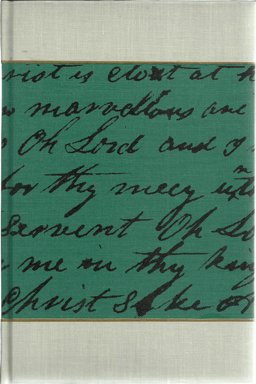 rist is clost at h
marvellous are
Oh Lord and y
for thy mecy unto
servent Oh Lo
me in thy king
Christ Sake or